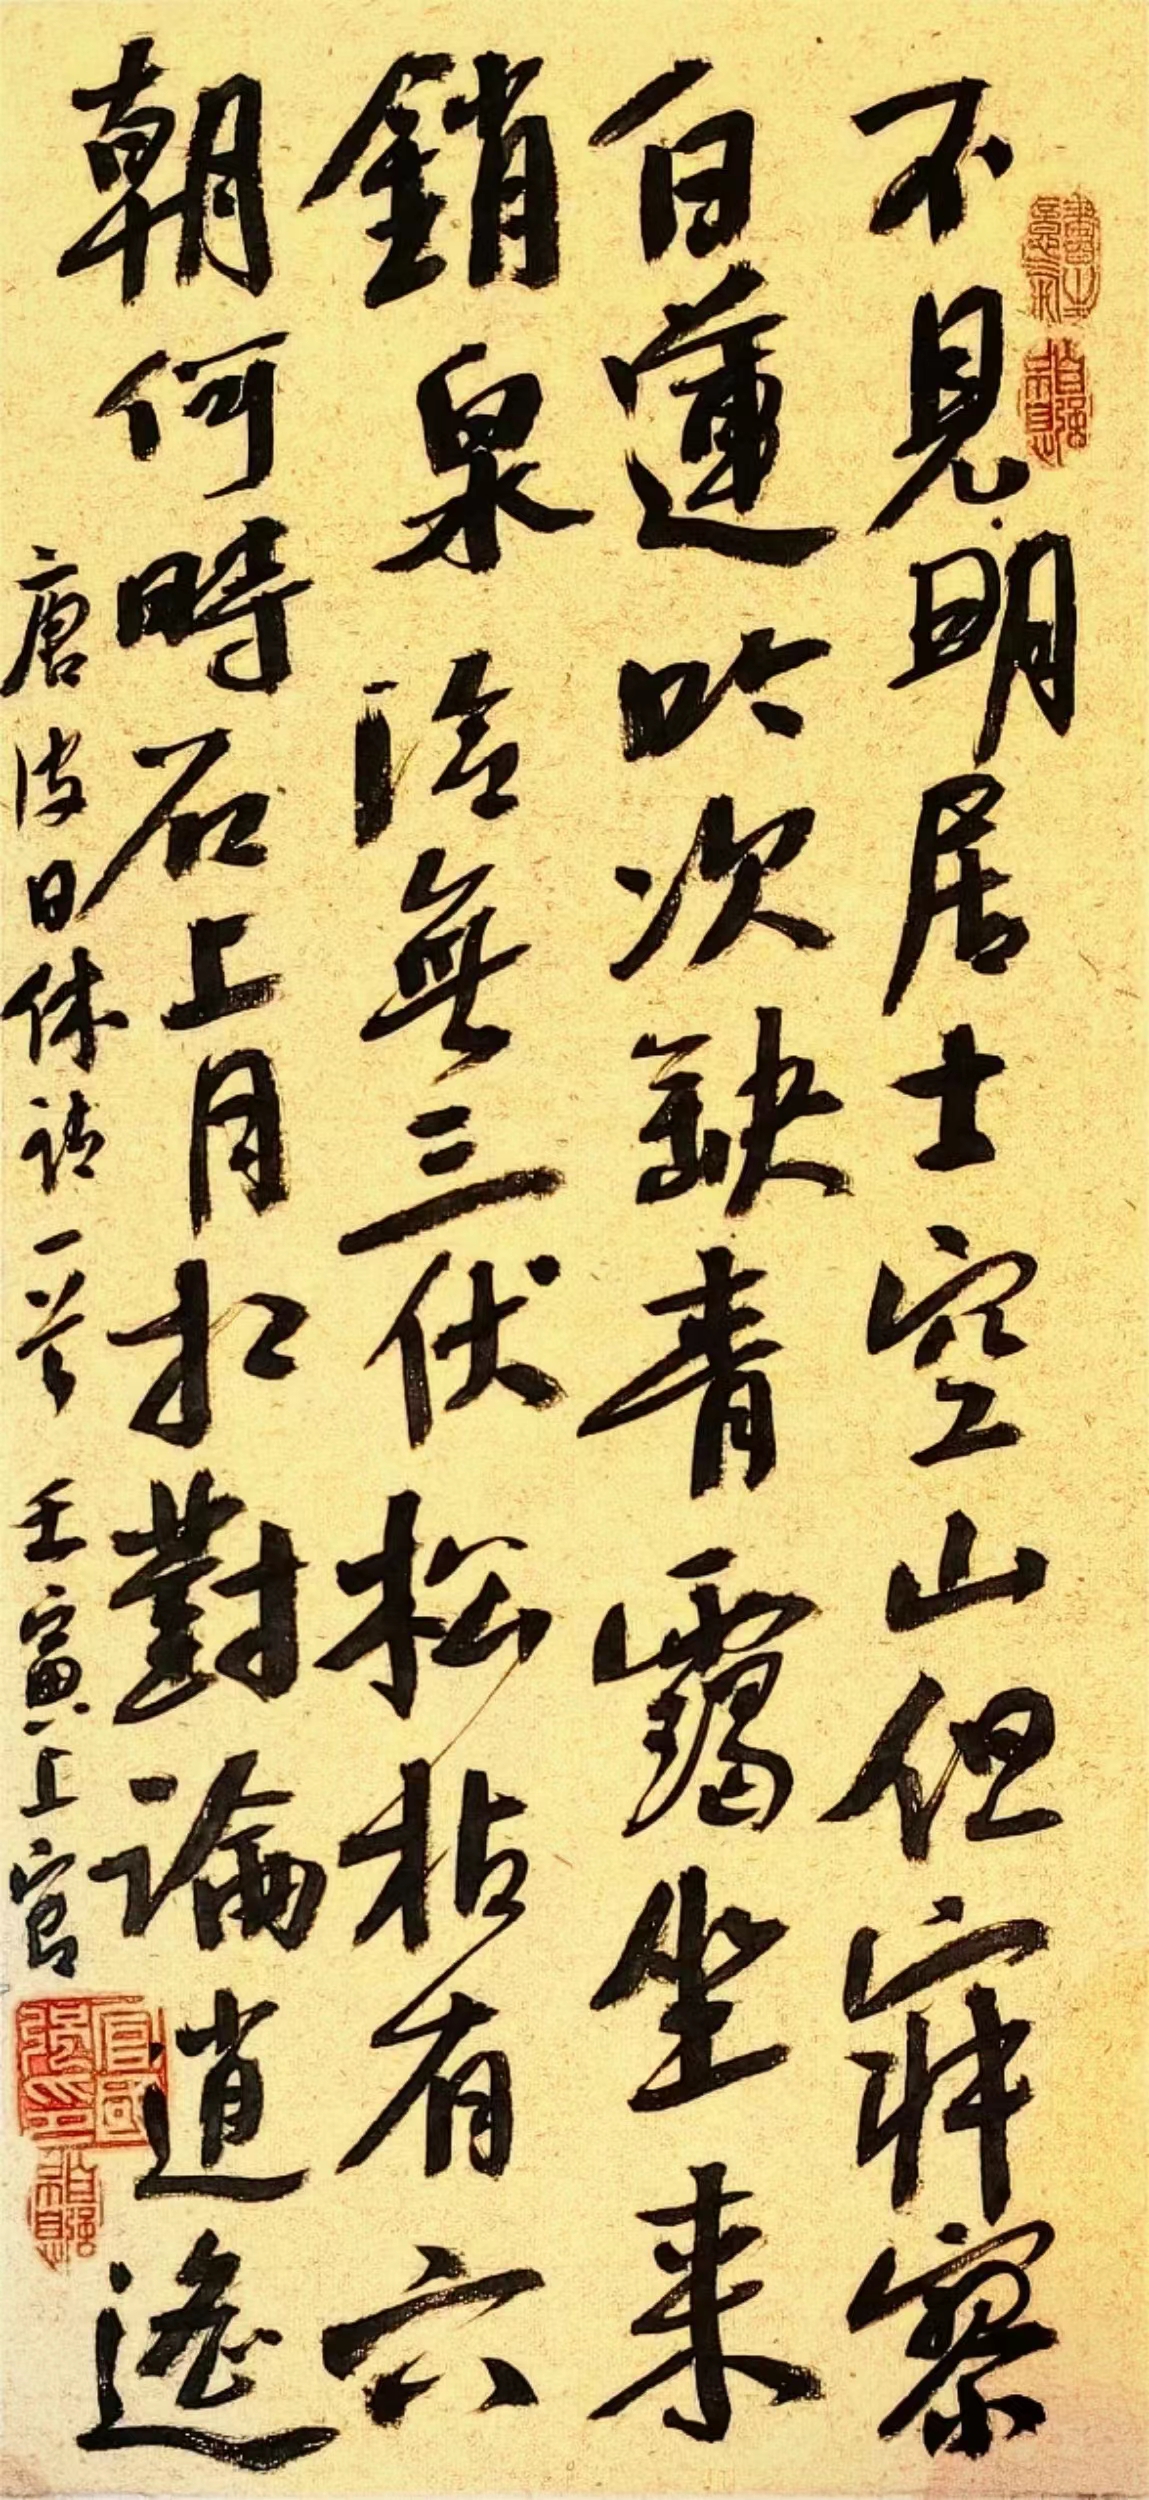 不見明居士空山但寂寥
白蓮吟次缺青靄坐来
銷泉冷無三伏松枯有六
朝何時石上月相對論逍遙
唐皮日休詩一首 壬寅上官